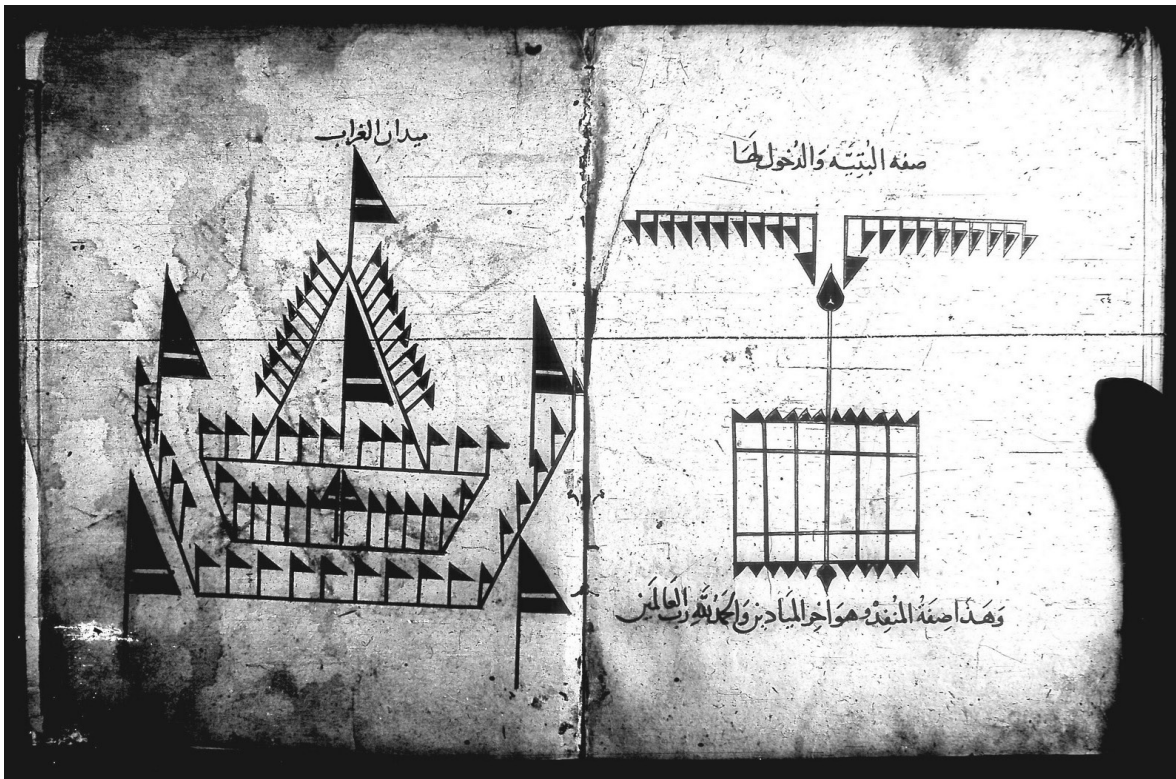 صفه البتيّه والدخول لها
٢٤
وهذا صفة المنفد وهو اخر الميادين والحمد لله رب العالمين
ميدان الغراب